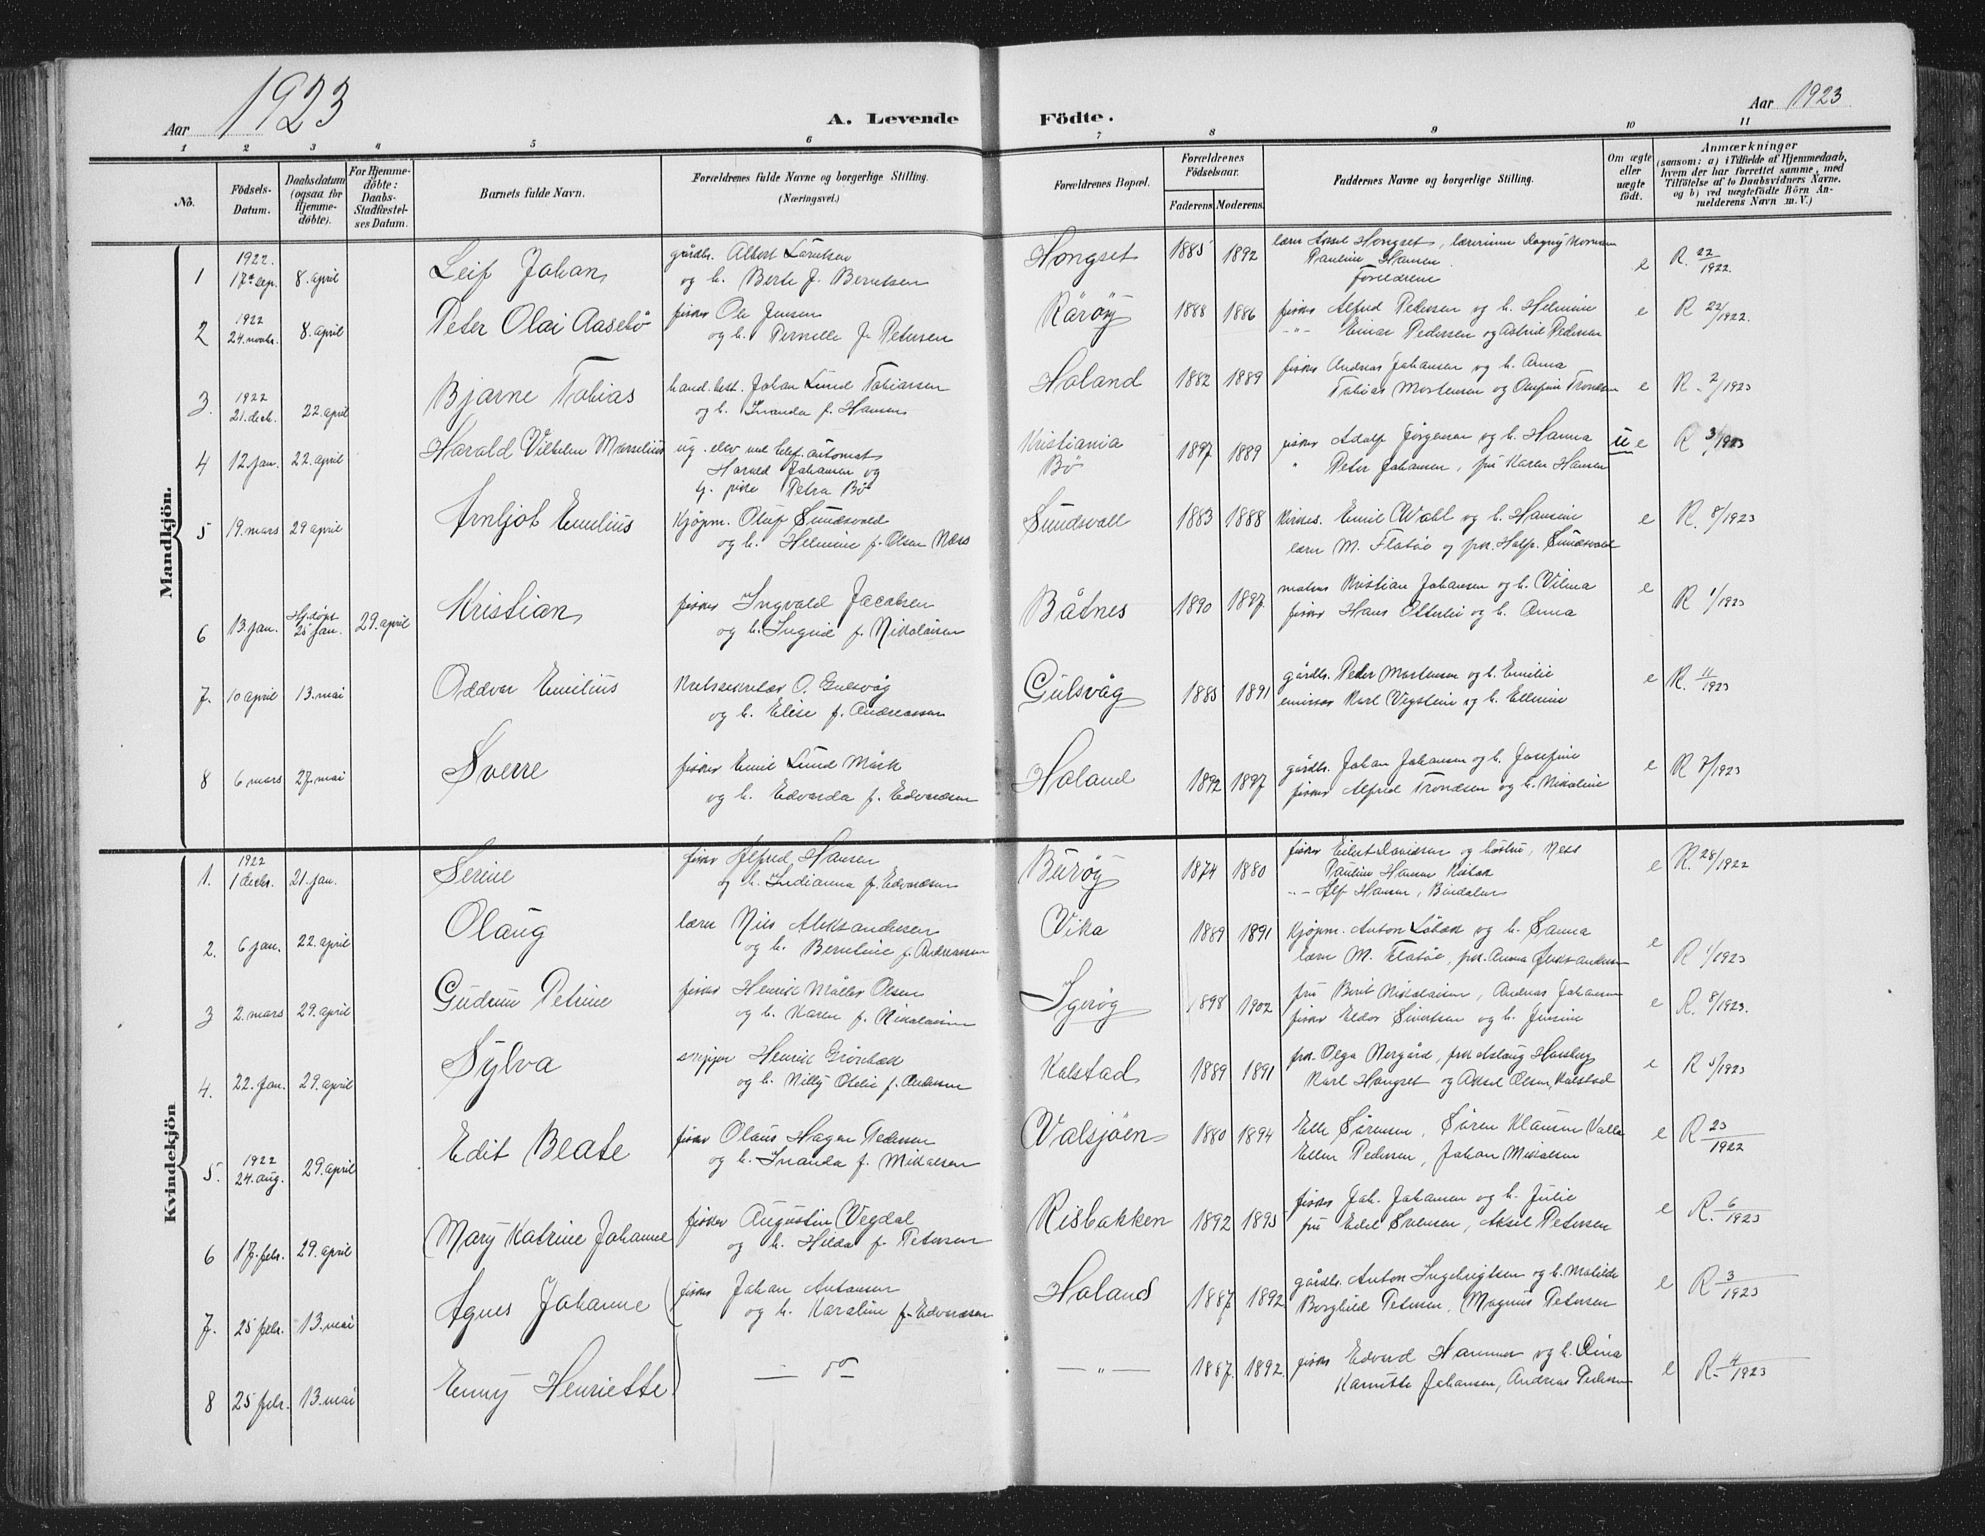 Aar 1923
A. Levende
Födte.
Aar 1923
1 2 3 4 5 6 7 8 9 10 11
No.
Födsels-
Datum.
Daabsdatum
(ogsaa for
Hjemme-
döbte).
For Hjemme-
döbte:
Daabs-
Stadfæstel-
ses Datum.
Barnets fulde Navn.
Forældrenes fulde Navne og borgerlige Stilling.
(Næringsvei.)
Forældrenes Bopæl.
Forældrenes
Födselsaar.
Faderens. Moderens.
Faddernes Navne og borgerlige Stilling.
Om ægte
eller
uægte
født.
Anmærkninger
(saasom: a) i Tilfælde af Hjemmedaab,
hvem der har forrettet samme, med
Tilföielse af to Daabsvidners Navne.
og b) ved uægtefödte Börn An-
melderens Navn m. V.)
Mandkjön.
1 1922 17de sep. 8. april Leif Johan
gårdbr. Albert Lorntsen
og h. Berte f. Berntsen
Hongset 1885 1892
lærer Aksel Hongset, lærerinne Dagny
Pauline Hansen
Foreldrene
e R. 22/1922.
2 1922 24. novbr. 8. april Peter Olai Aasebö
fisker Ole Jensen
og h. Pernille f. Petersen
Rårøy 1888 1886
fisker Alfred Pedersen og h. Helmine
-"- Einar Pedersen og Astrid Pedersen
e R 22/1922.
3. 1922 21. decb. 22. april Bjarne Tobias
hand.best. Johan Lund Tobiassen
og h. Inanda f. Hansen
Holand 1882 1889
fisker Andreas Johansen og h. Anna
Tobias Mortensen og Olufine Trondsen
e R. 2/1923
4 12. jan. 22. april Harald Vilhelm Marselius
ug. elev ved telef. automat
Harald Johansen og
pike Petra Bö
Kristiania
Bö
1897 1889
fisker Adolf Jörgensen og h. Hanna
" Peter Johansen, fru Karen Hansen
u e R 3/1923
5 19. mars 29 april Arnljot Emilius
Kjøpm. Oluf Sundsvold
og h. Helmine f. Olsen Næss
Sundsvoll 1883 1888
Emil Wahl og h. Hansine
lærer M. Flatöe og frk. Halfr. Sundsvold
e R. 8/1923
6 13. jan. Hj.døpt 25 jan. 29. april Kristian
fisker Ingvald Jacobsen
og h. Ingrid f. Nikolaisen
Båtnes 1890 1897
Kristian Johansen og h. Vilma
fisker Hans Ottulei og h. Anna
e R 1/1923
7. 10 april 13. mai Oddvar Emilius
Kretssekretær O. Gulsvåg
og h. Elise f. Andreassen
Gulsvåg 1885 1891
gårdbr. Peder Mortensen og h. Emilie
emissær Karl Vegstein og h. Elline
e R. 11/1923
8 6 mars 27. mai Sverre
fisker Emil Lund Mårk
og h. Edvarda f. Edvardsen
Holand 1892 1897
gårdbr. Johan Johansen og h. Josefine
fisker Alfred Trondsen og h. Nikoline
e R 7/1923
Kvindekjön
1. 1922 1 decbr. 21. jan. Serine
fisker Alfred Hansen
og h. Indianna f. Edvardsen
Buröy 1874 1880
fisker Eilert Davidsen og hustru, Ness
Pauline Hansen
-"- Alf Hansen, Bindalen
e R. 28/1922
2. 6 jan. 22. april Olaug
lærer Nils Aleksandersen
og h. Berntine f. Andreassen
Vika 1889 1891
Kjøpm. Anton Löbak og h. Sanna
lærer M. Flatöe, frk. Anna Aleksandersen
e R 1/1923
3 2. mars 29. april Gudrun Petrine
fisker Henrik Møller Olsen
og h. Karen f. Nikolaisen
Igeröy 1898 1902
fru Berit Nikolaisen, Andreas Johansen
fisker Eldor Sivertsen og h. Jensine
e R. 8/1923.
4. 22. jan. 29. april Sylva
skipper Henrik Grönbæk
og h. Nilly Otelie f. Andersen
Kalstad 1889 1891
frk. Olga Nergård, frk Aslaug
Karl Hongset og Aksel Olsen, Kalstad
e R 5/1923
5. 1922 24. aug. 29. april Edit Beate
fisker Olaus Hagen Pedersen
og h. Inanda f. Mikalsen
Valsjöen 1880 1894
Elle Sörensen, Sören Klausen Valla
Ellen Pedersen, Johan Mikalsen
e R 23/1922
6 17. febr. 29. april Mary Katrine Johanne
fisker Augustin Vegdal
og h. Hilda f. Petersen
Risbakken 1892 1895
fisker Joh. Johansen og h. Julie
fru Edel Svensen, Aksel Petersen
e R. 6/1923
7. 25 febr. 13. mai Agnes Johanne
fisker Johan Antonsen
og h. Karoline f. Edvardsen
Holand 1887 1892
gårdbr. Anton Ingebrigtsen og h. Matilde
Borghild Petersen, Magnus Petersen
e R 3/1923
8 25 febr. 13. mai Enny Henriette
— do —
— " — 1887. 1892.
fisker Edvard Hammer og h. Dina
Johansen, Andreas Pedersen
e R. 4/1923